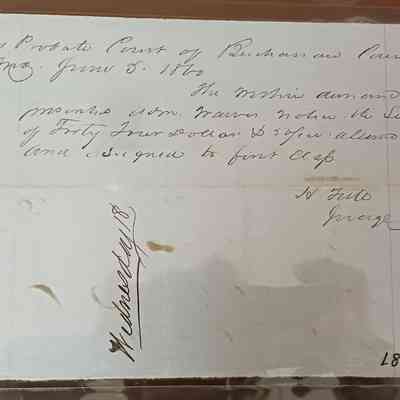 Probate Court of Buchanan
June 5. 1860
The within demand
presented adm. waives notice the
of Forty Four Dollars &
and assigned to first Class
Judge
Wednesday 18
87